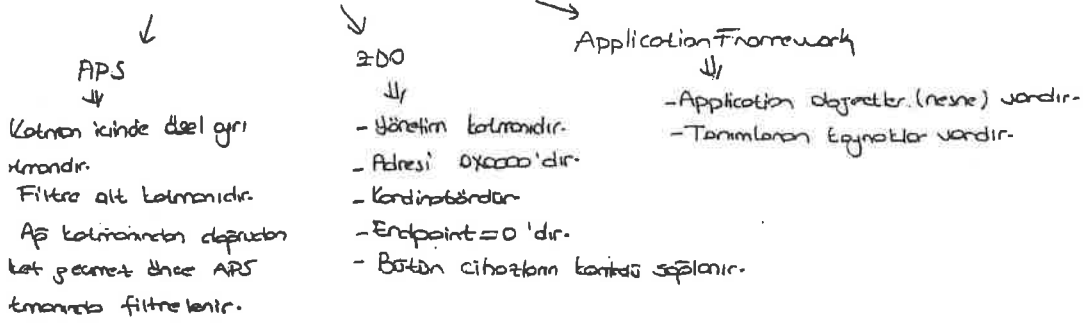 APS
Katman içinde özel ayrı
katmandır.
Filtre alt katmanıdır.
Ağ katmanından doğrudan
ket geçmek önce APS
tmanında filtrelenir.
ZDO
- Yönetim katmanıdır.
- Adresi 0x0000'dır.
- Kordinatördür
- Endpoint=0'dır.
- Bütün cihazların kontrolü sağlanır.
Application Framework
- Application objectler (nesne) vardır.
- Tanımlanan kaynaklar vardır.